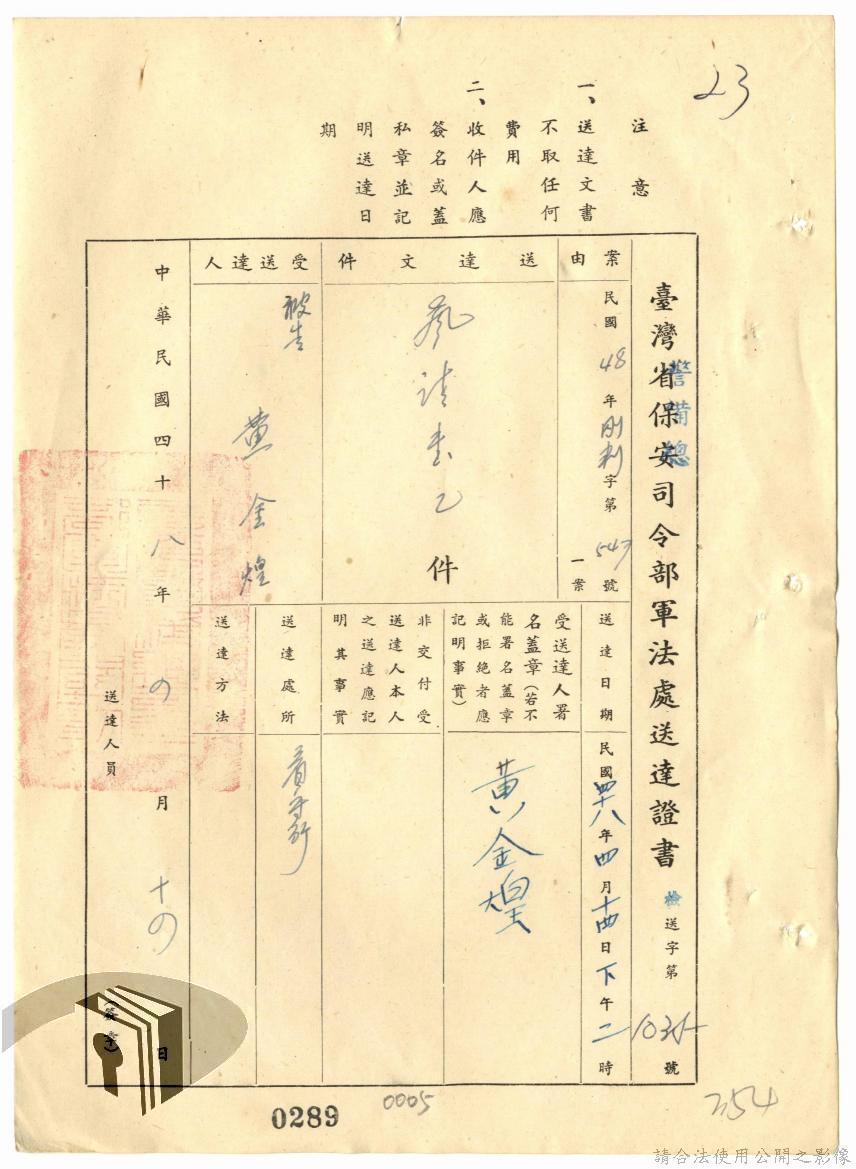 23
注意
一、送達文書
不取任何
費用
二、收件人應
簽名或蓋
私章並記
明送達日
期
臺灣省保安司令部軍法處送達證書
警備總
檢送字第1035號
案由
民國48年剛判字第547號
一案
送達文件
書乙件
受送達人
被告
黃金煌
送達日期
民國四十八年四月十四日下午二時
受送達人署
名蓋章(若不
能署名蓋章
或拒絕者應
記明事實)
黃金煌
非交付受
送達人本人
之送達應記
明其事實
送達處所
看守所
送達方法
中華民國四十八年四月十四日
送達人員
(簽章)
0289
0005
354
請合法使用公開之影像